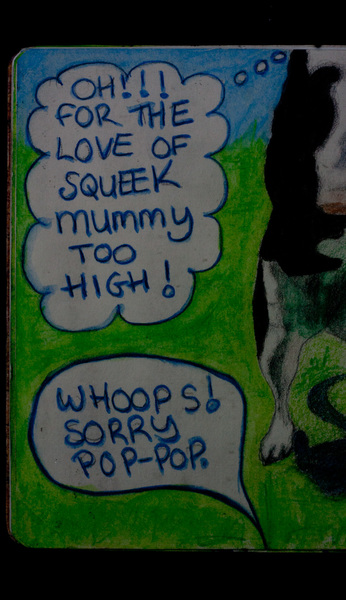 OH!!!
FOR THE
LOVE OF
SQUEEK
mummy
TOO
HIGH!
WHOOPS!
SORRY
POP-POP.